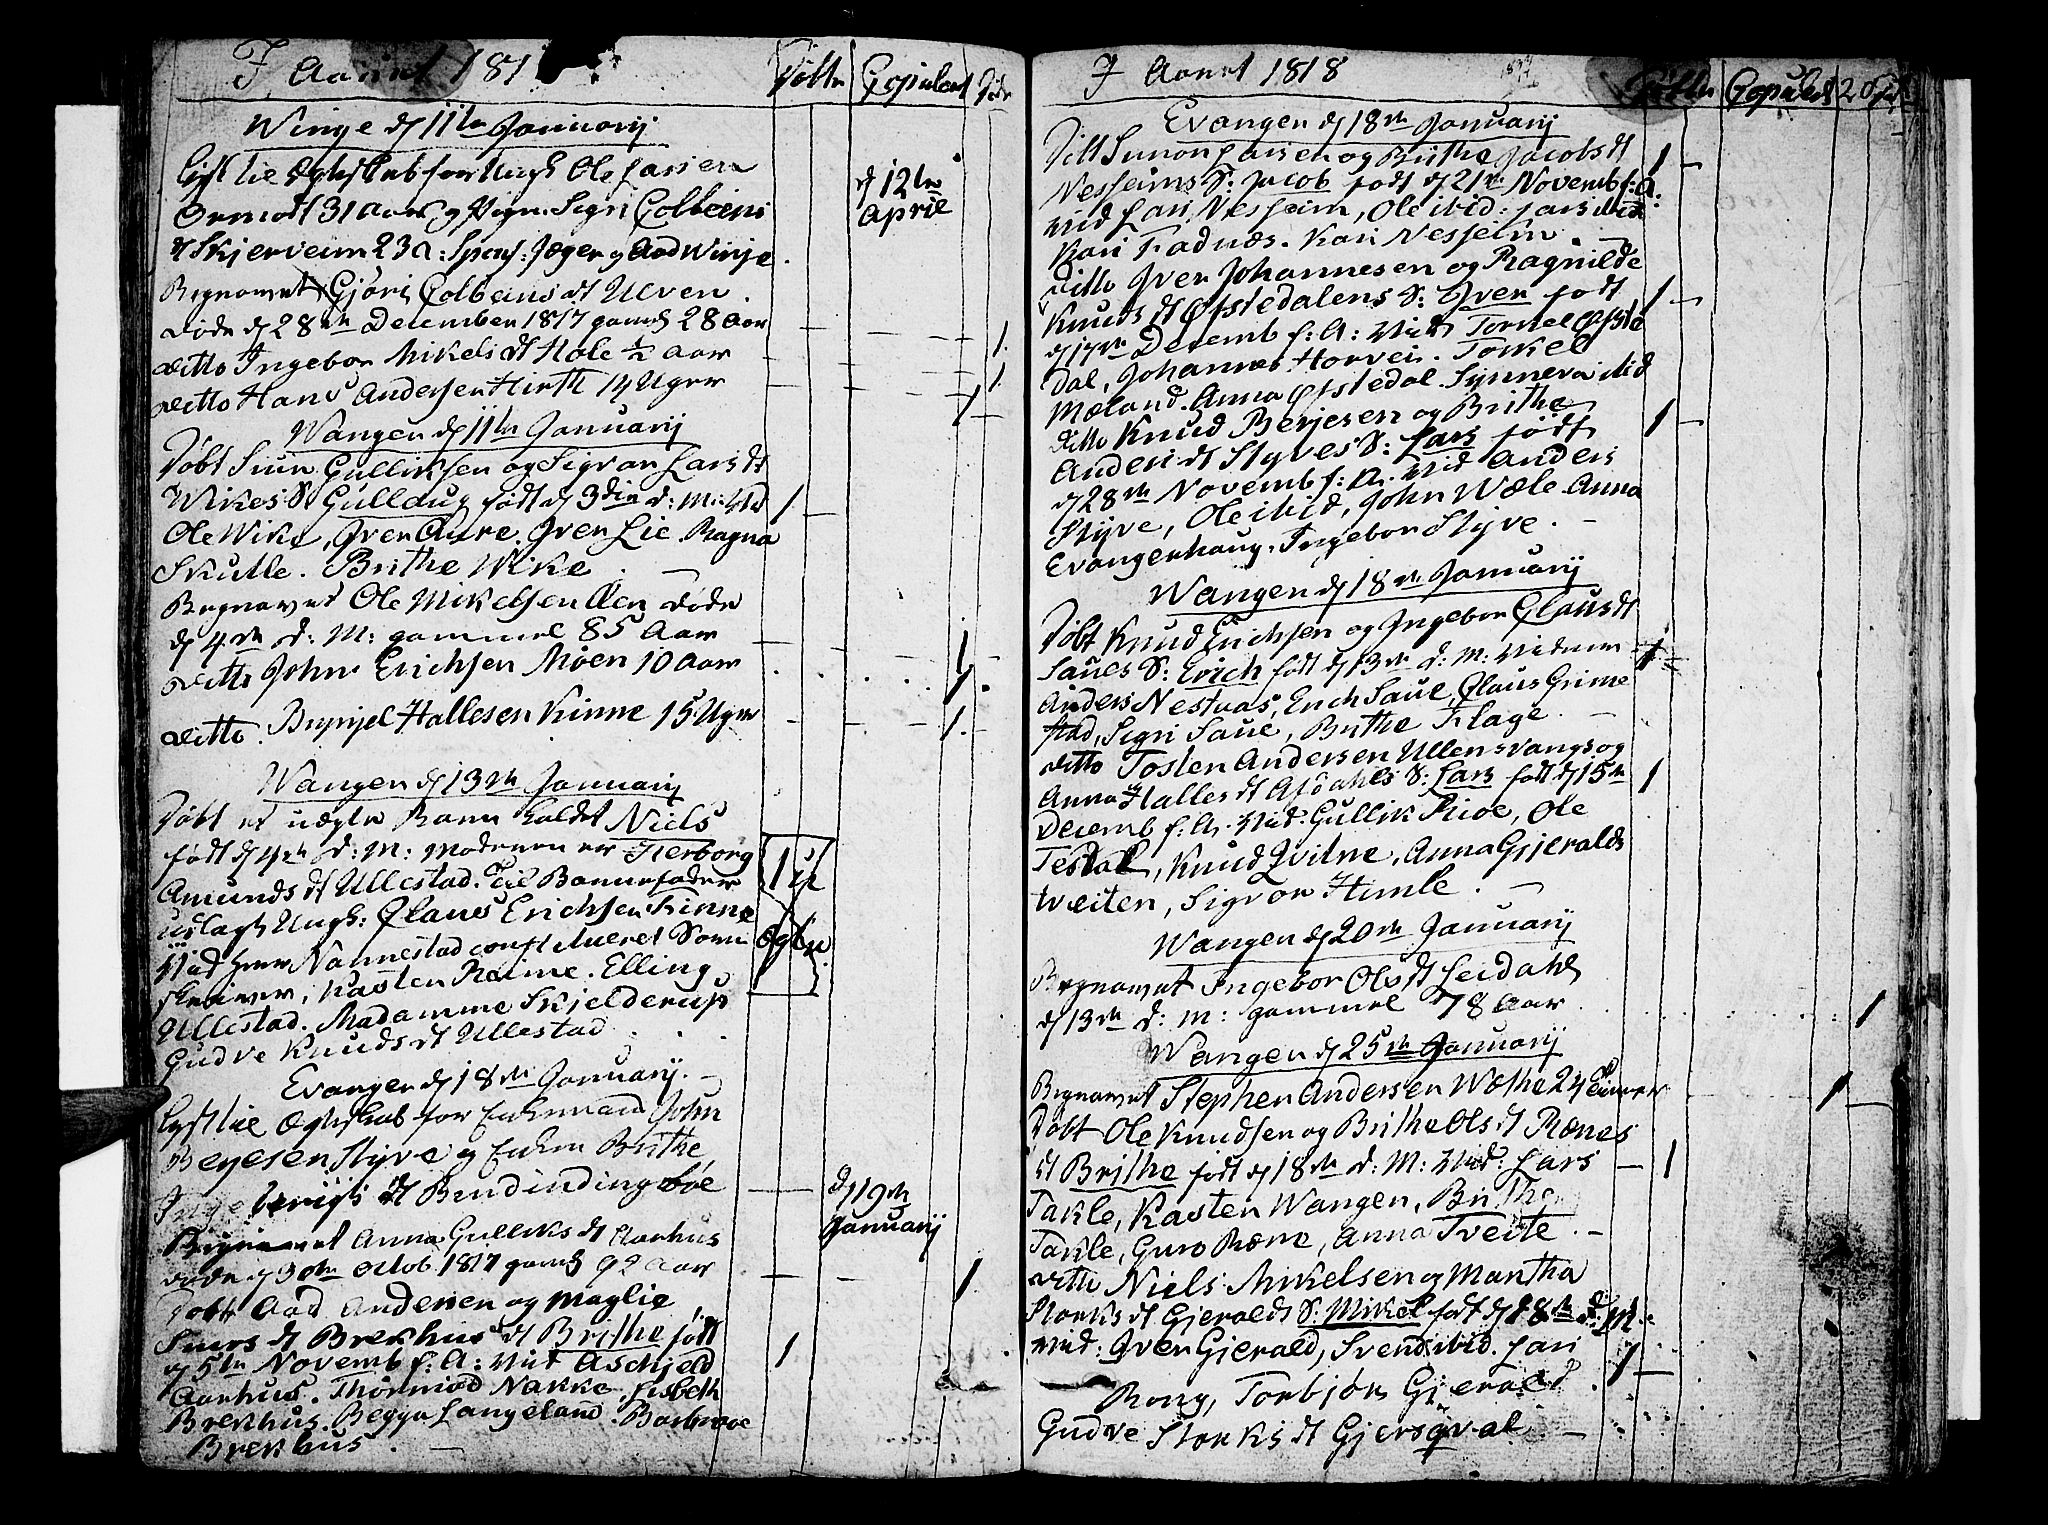 I Aaret 181
Døbte Copuleret Døde
Winje d 11te Januarij
Lyst til Ægteskab for Ungk Ole Larsen
Ormost 31 Aar og Pign. Sigri Colbeens
dt Skjerveim 23 A: Spons: Jæger og Aad Winje
d 12te
April
Begravet Gjøri Colbeens dt Ulven
døde d 28de December 1817 gaml 28 Aar
ditto Ingebor Mikels dt Hole ½ Aar
ditto Hans Andersen Hirth 14 Uger
Wangen d 11te Januarij
Døbt Siur Gulliksen og Sigvor Lars dt
Wikes S Gulldug født d 3die d: M: Vid
Ole Wike, Iver Aure. Iver Lie. Ragna
Skutle. Brithe Wike
Begravet Ole Mikelsen døde
d 4de d: M: gammel 85 Aar
ditto John Erichsen Møen 10 Aar
ditto Brynjel Hallesen Kinne 15 Uger
Wangen d 13de Januarij
Døbt et uægte Barn kaldet Niels
født d 4de d: M: Moderen er Herborg
Amunds dt Ullestad. Til Barnefader
udlagt Ungk: Claus Erichsen Kinne
Vid Herr Nannestad constitueret Soren
skriver, Kasten Reime. Elling
Ullestad. Madamme Skjelderup
Gudve Knuds dt Ullestad
1 U
ægte
Evanger d 18de Januarij
Lyst til Ægteskab for Enkemand John
Styve og Enken Brithe
dt
d 19de
Januarij
Begravet Anna Gulliks dt Aarhus
døde d 30te Octob 1817 gaml 92 Aar
Døbt Aad Andersen og Maglie
Siurs dt Brekhus dt Brithe født
d 5te Novemb f: A: Vid Aschjeld
Aarhus. Thormod Nakke. Lisbeth
Brekhus. Begga Langeland. Barbroe
Brekhus
I Aaret 1818
Døbte Copulert Døde
Evanger d 18de Januarij
Døbt Simon Larsen og Brithe Jacobs dt
Nesheims S: Jacob født d 21de Novemb f: A:
vid Lars Nesheim, Ole ibid: Lars ibid
Kari Fadnæs. Kari Nesheim
Ditto Iver Johannesen og Ragnilde
Knuds dt Øfstedalens S: Iver født
d 17de Decemb f: A: Vid Torkel Øfste
dal, Johannes Horvei. Torkel
Mæland. Anna Øfstedal. Synneva ibid
ditto Knud Berjesen og Brithe
Anders dt Styves S: Lars født
d 28de Novemb f: A: Vid Anders
Styve, Ole ibid, John Wæle. Anna
Evangerhaug. Ingebor Styve
Wangen d 18de Januarij
Døbt Knud Erichsen og Ingebor Claus dt
Saues S: Erich født d 13de d: M: Vidner
Anders Nestaas, Erich Saue, Claus Grime
stad, Sigri Saue, Brithe Flage
ditto Tosten Andersen Ullensvangs og
Anna Halles dt Afdahls S: Lars født d 15de
Decemb f: A: Vid: Gullik Rioe, Ole
Testal, Knud Qvitne, Anna Gjeralds
tweiten, Sigvor Himle
Wangen d 20de Januarij
Begravet Ingebor Ols dt Leidahl
d 13de d: M: gammel 78 Aar
Wangen d 25de Januarij
Begravet Stephen Andersen Wæthe 24
Døbt Ole Knudsen og Brithe Ols dt Rønes
dt Brithe født d 18de d: M: Vid: Lars
Takle, Kasten Wangen, Brithe
Takle, Guro Røne, Anna Tveite
ditto Niels Mikelsen og Martha
Storks dt Gjeralds S: Mikel født d 18de d: M:
vid: Iver Gjerald, Svend ibid. Lars
Rong, Torbjør Gjerald
Gudve Storks dt Gjersqval